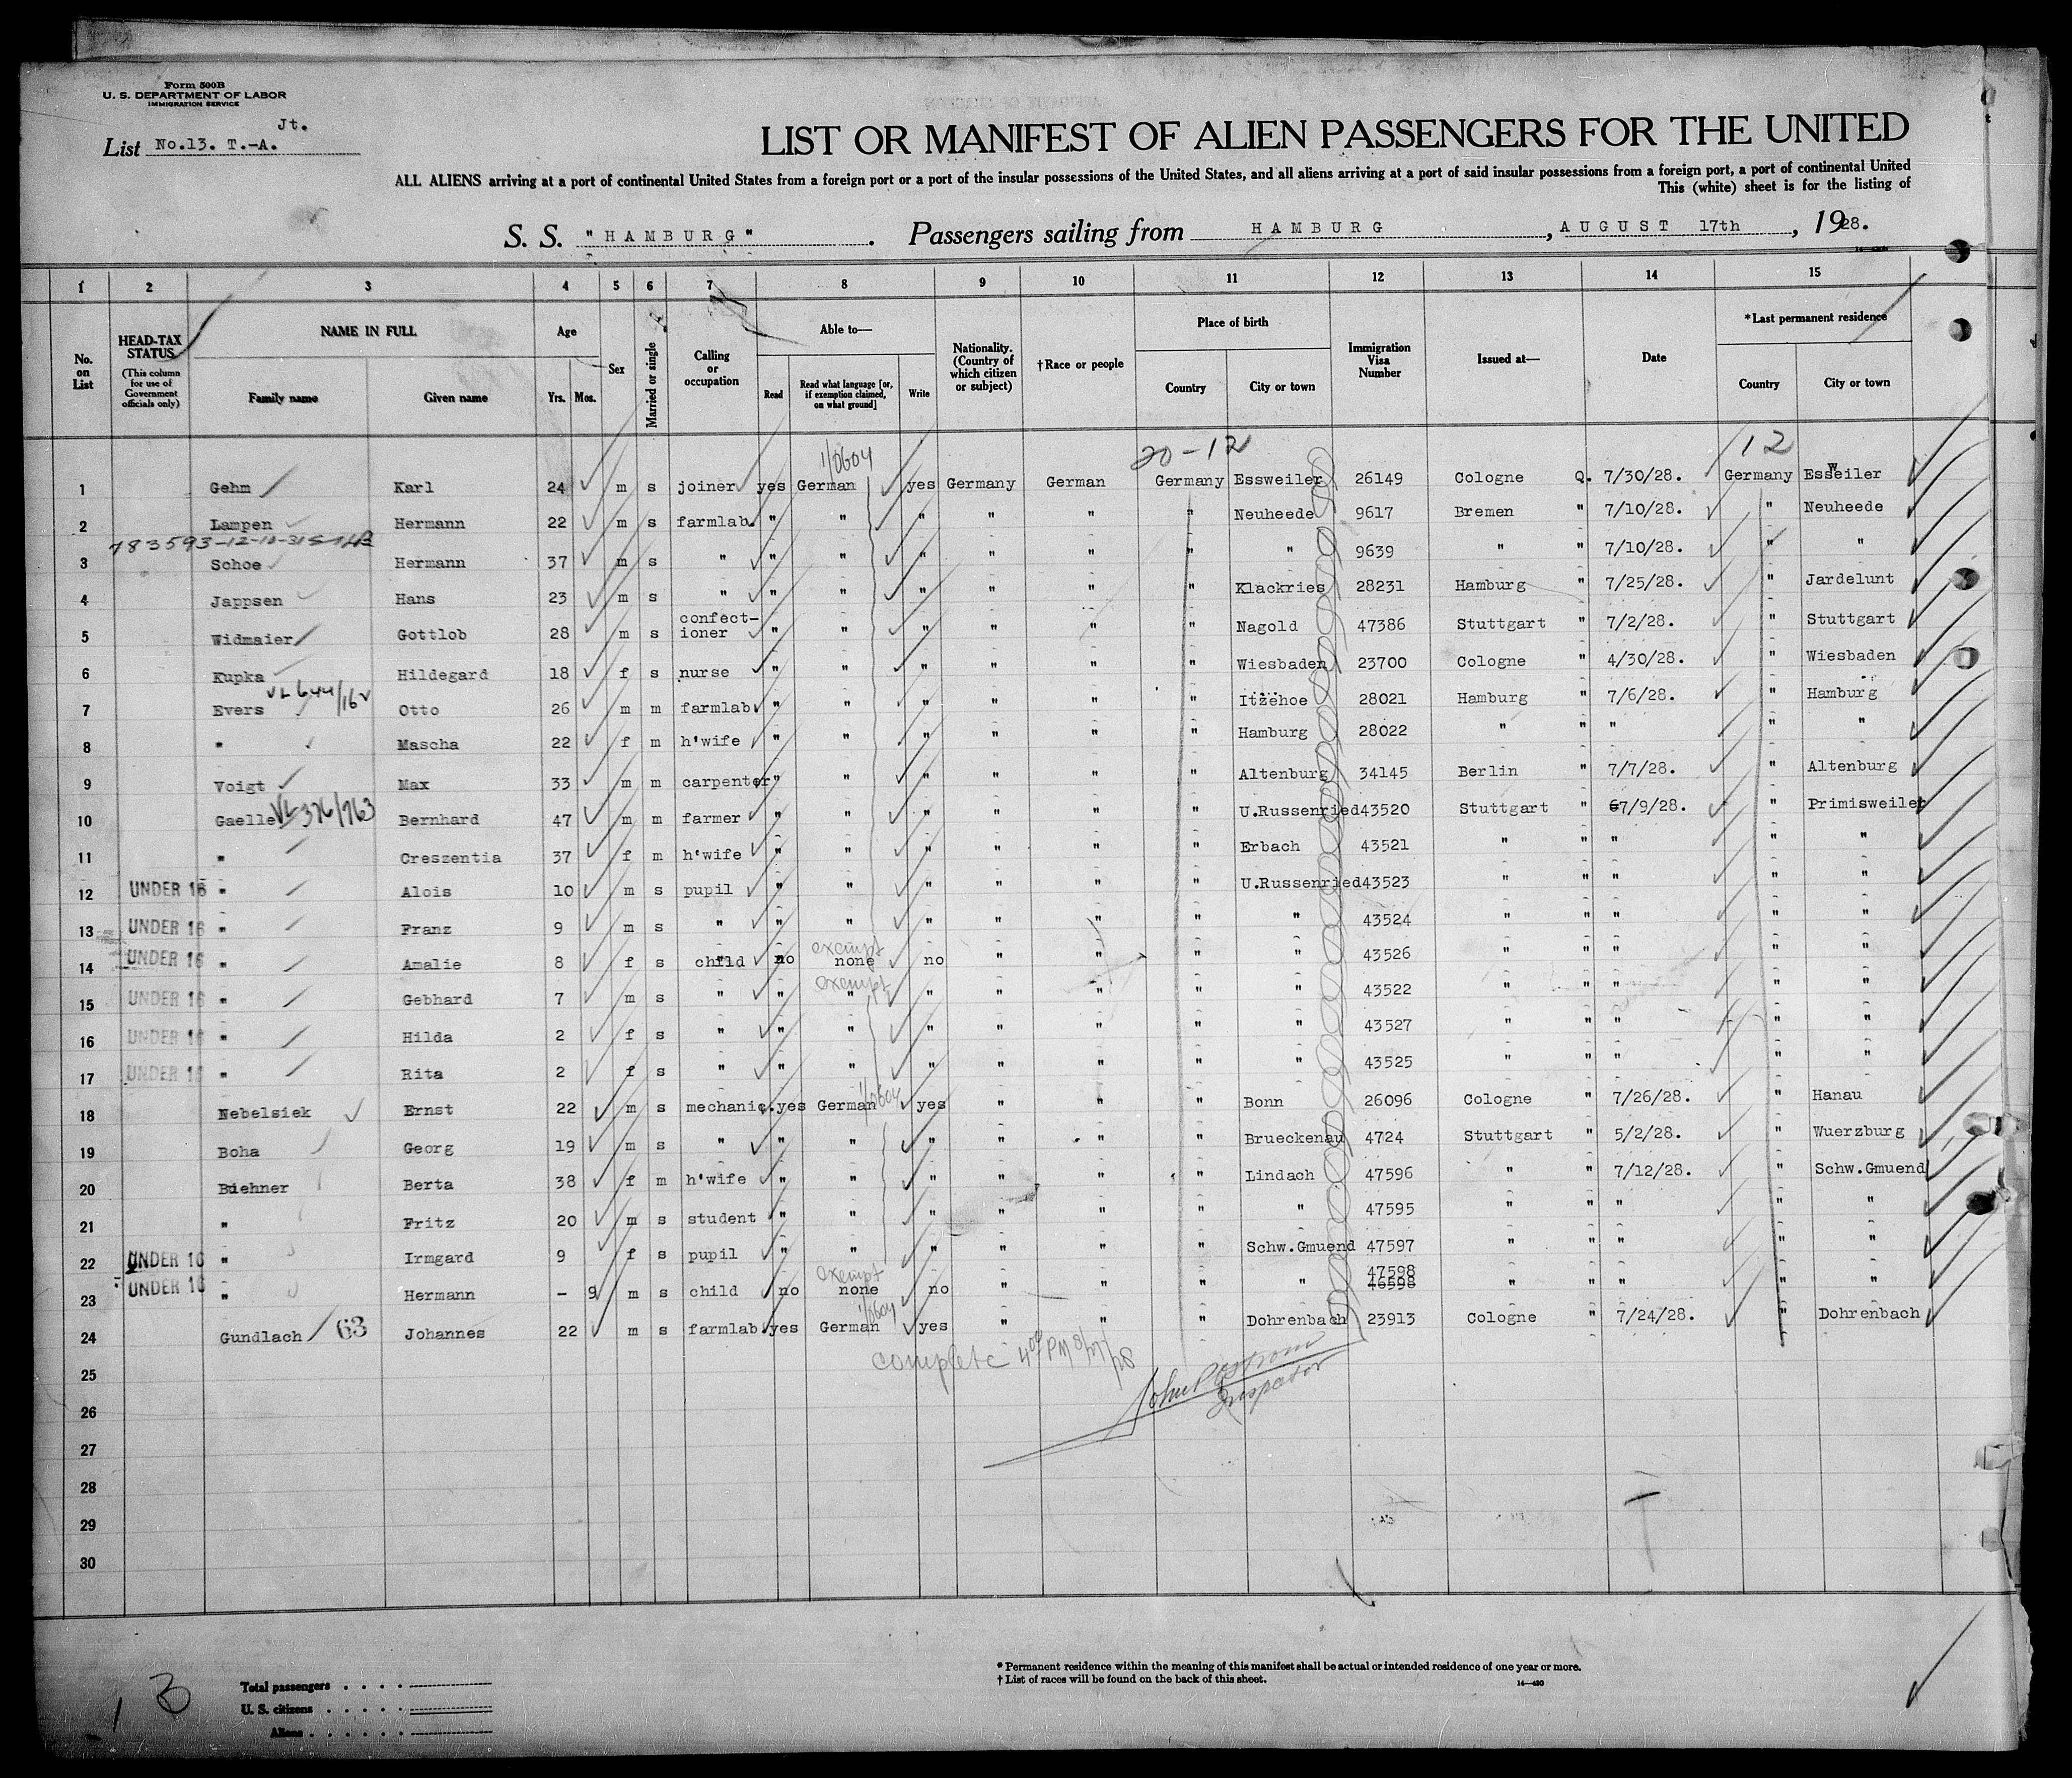 Form 500B
U. S. DEPARTMENT OF LABOR
IMMIGRATION SERVICE
Jt.
List No.13. T.-A.
LIST OR MANIFEST OF ALIEN PASSENGERS FOR THE UNITED
ALL ALIENS arriving at a port of continental United States from a foreign port or a port of the insular possessions of the United States, and all aliens arriving at a port of said insular possessions from a foreign port, a port of continental United
This (white) sheet is for the listing of
S. S. "HAMBURG". Passengers sailing from HAMBURG, AUGUST 17th, 1928.
1 2 3 4 5 6 7 8 9 10 11 12 13 14 15
No. on List
HEAD-TAX STATUS (This column for use of Government officials only)
NAME IN FULL Family name Given name
Age Yrs. Mos.
Sex
Married or single
Calling or occupation
Able to— Read Read what language [or, if exemption claimed, on what ground] Write
Nationality. (Country of which citizen or subject)
†Race or people
Place of birth Country City or town
Immigration Visa Number
Issued at—
Date
*Last permanent residence Country City or town
20-12 12
1 Gehm Karl 24 m s joiner yes German yes Germany German Germany Essweiler 26149 Cologne Q. 7/30/28. Germany Essweiler
2 Lampen Hermann 22 m s farmlab. " " " " " " Neuheede 9617 Bremen " 7/10/28. " Neuheede
3 Schoe Hermann 37 m s " " " " " " " " 9639 " " 7/10/28. " "
4 Jappsen Hans 23 m s " " " " " " " Klackries 28231 Hamburg " 7/25/28. " Jardelunt
5 Widmaier Gottlob 28 m s confect-ioner " " " " " " Nagold 47386 Stuttgart " 7/2/28. " Stuttgart
6 Kupka Hildegard 18 f s nurse " " " " " " Wiesbaden 23700 Cologne " 4/30/28. " Wiesbaden
7 Evers Otto 26 m m farmlab. " " " " " " Itzehoe 28021 Hamburg " 7/6/28. " Hamburg
8 " Mascha 22 f m h'wife " " " " " " Hamburg 28022 " " " " "
9 Voigt Max 33 m m carpenter " " " " " " Altenburg 34145 Berlin " 7/7/28. " Altenburg
10 Gaelle Bernhard 47 m m farmer " " " " " " U.Russenried 43520 Stuttgart " 7/9/28. " Primisweiler
11 " Creszentia 37 f m h'wife " " " " " " Erbach 43521 " " " " "
12 UNDER 16 " Alois 10 m s pupil " " " " " " U.Russenried 43523 " " " " "
13 UNDER 16 " Franz 9 m s " " " " " " " " 43524 " " " " "
14 UNDER 16 " Amalie 8 f s child no exempt none no " " " " 43526 " " " " "
15 UNDER 16 " Gebhard 7 m s " " exempt " " " " " " 43522 " " " " "
16 UNDER 16 " Hilda 2 f s " " " " " " " " 43527 " " " " "
17 UNDER 16 " Rita 2 f s " " " " " " " " 43525 " " " " "
18 Nebelsiek Ernst 22 m s mechanic. yes German yes " " " Bonn 26096 Cologne " 7/26/28. " Hanau
19 Boha Georg 19 m s " " " " " " " Brueckenau 4724 Stuttgart " 5/2/28. " Wuerzburg
20 Biehner Berta 38 f m h'wife " " " " " " Lindach 47596 " " 7/12/28. " Schw.Gmuend
21 " Fritz 20 m s student " " " " " " " 47595 " " " " "
22 UNDER 16 " Irmgard 9 f s pupil " " " " " " Schw.Gmuend 47597 " " " " "
23 UNDER 16 " Hermann - 9 m s child no exempt none no " " " " 47598 46598 " " " " "
24 Gundlach 63 Johannes 22 m s farmlab. yes German yes " " " Dohrenbach 23913 Cologne " 7/24/28. " Dohrenbach
complete
25
Inspector
26
27
28
29
30
* Permanent residence within the meaning of this manifest shall be actual or intended residence of one year or more.
† List of races will be found on the back of this sheet.
14—430
Total passengers
U. S. citizens
Aliens
13